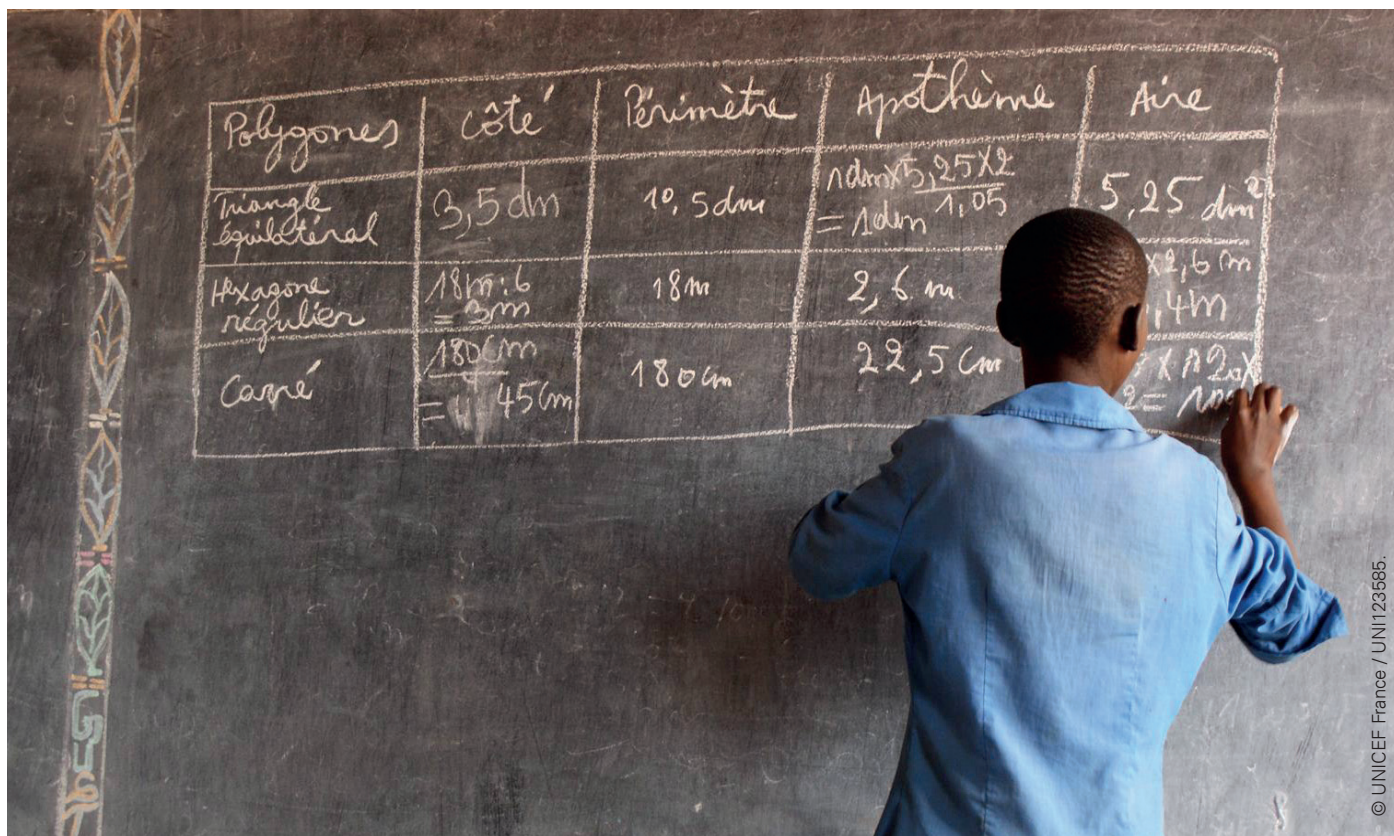 Polygones côté Périmètre Apothème Aire
Triangle équilatéral 3,5 dm 10,5 dm 1dm x 5,25 x 2
1,05
= 1dm 5,25 dm²
Hexagone régulier 18m : 6
= 3m 18m 2,6 m x 2,6 m
,4m
Carré 180cm
= 45cm 180cm 22,5 cm
© UNICEF France / UNI123585.